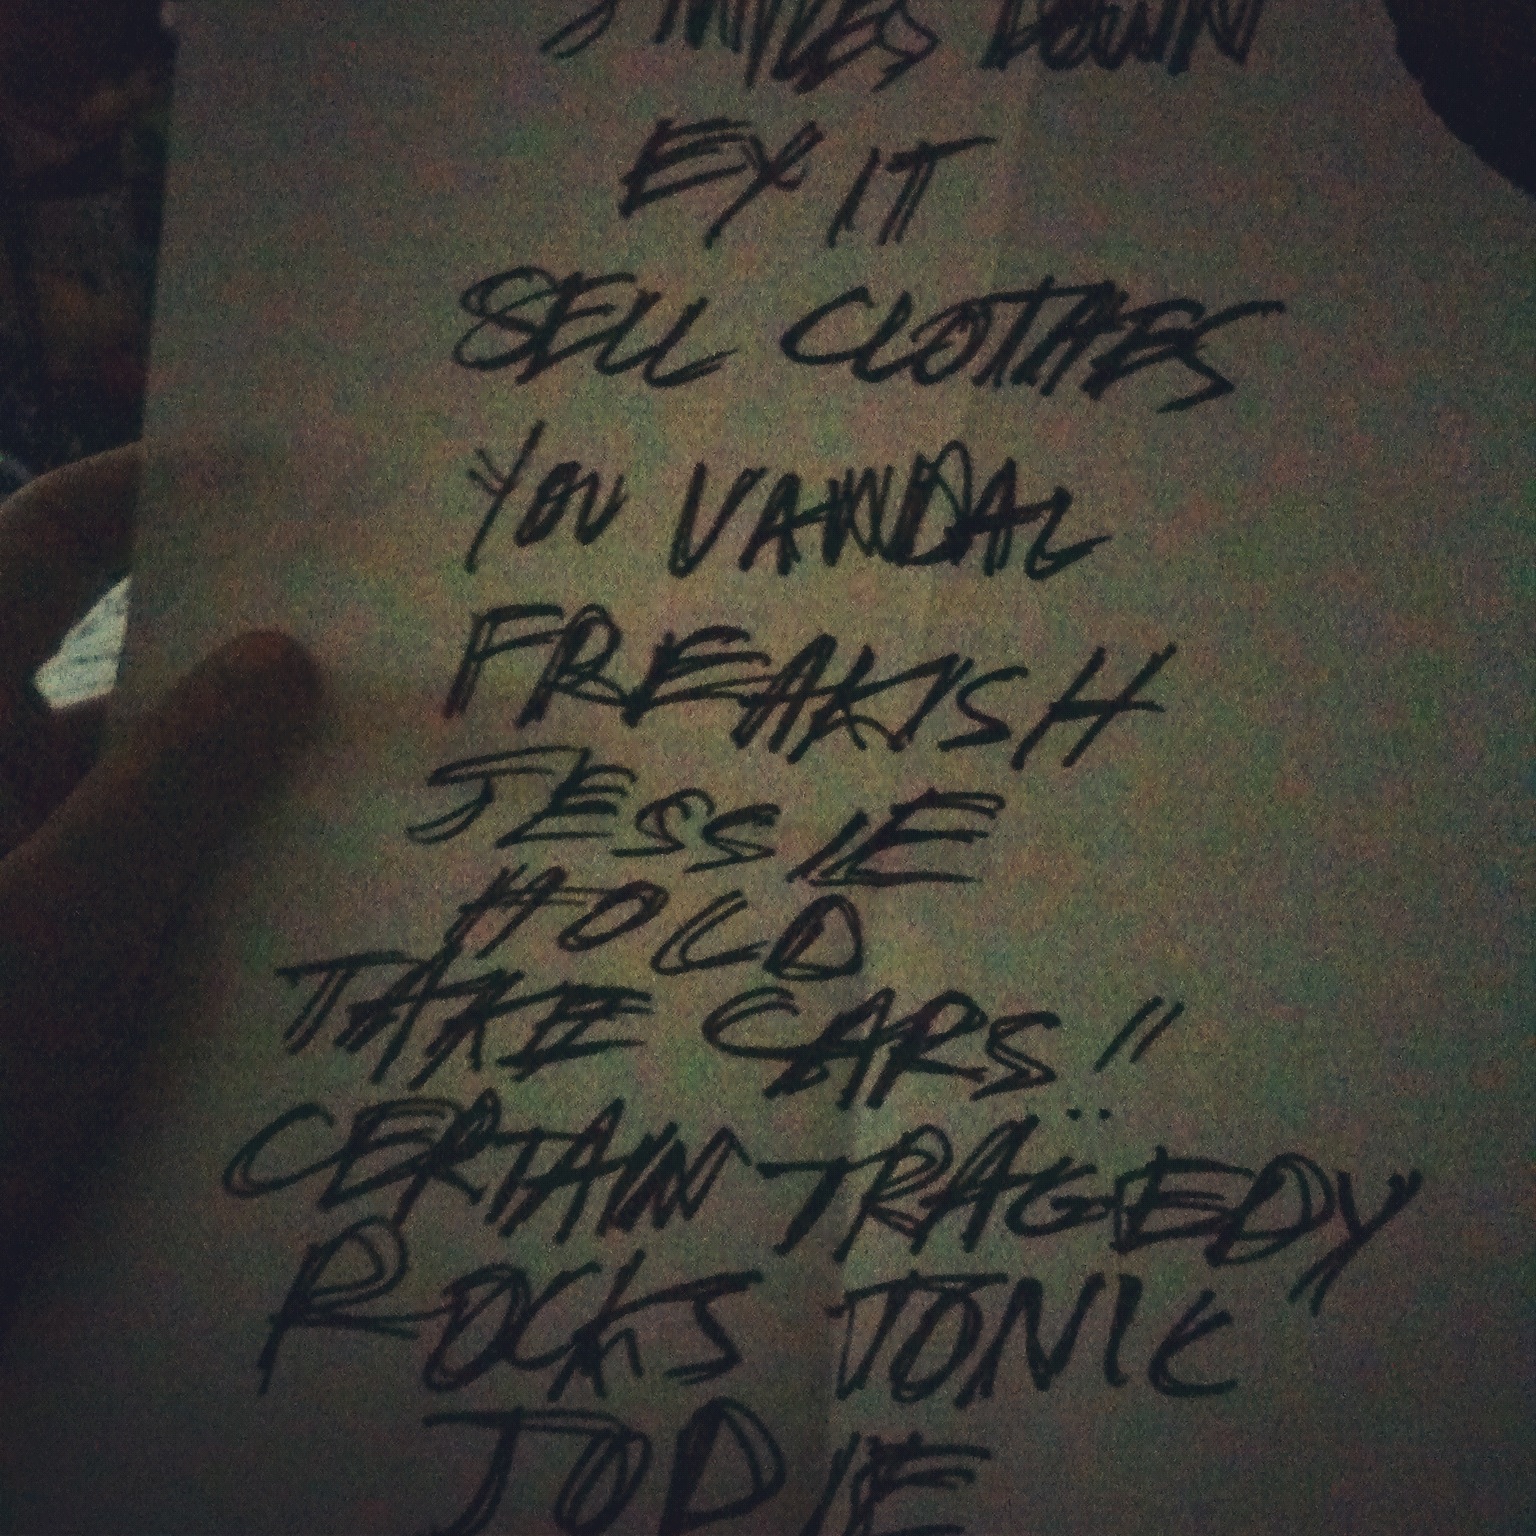 3 MILES DOWN
EXIT
SELL CLOTHES
YOU VANDAL
FREAKISH
JESSIE
HOLD
TAKE CARS"
CERTAIN TRAGEDY
ROCKS TONIC
JODIE